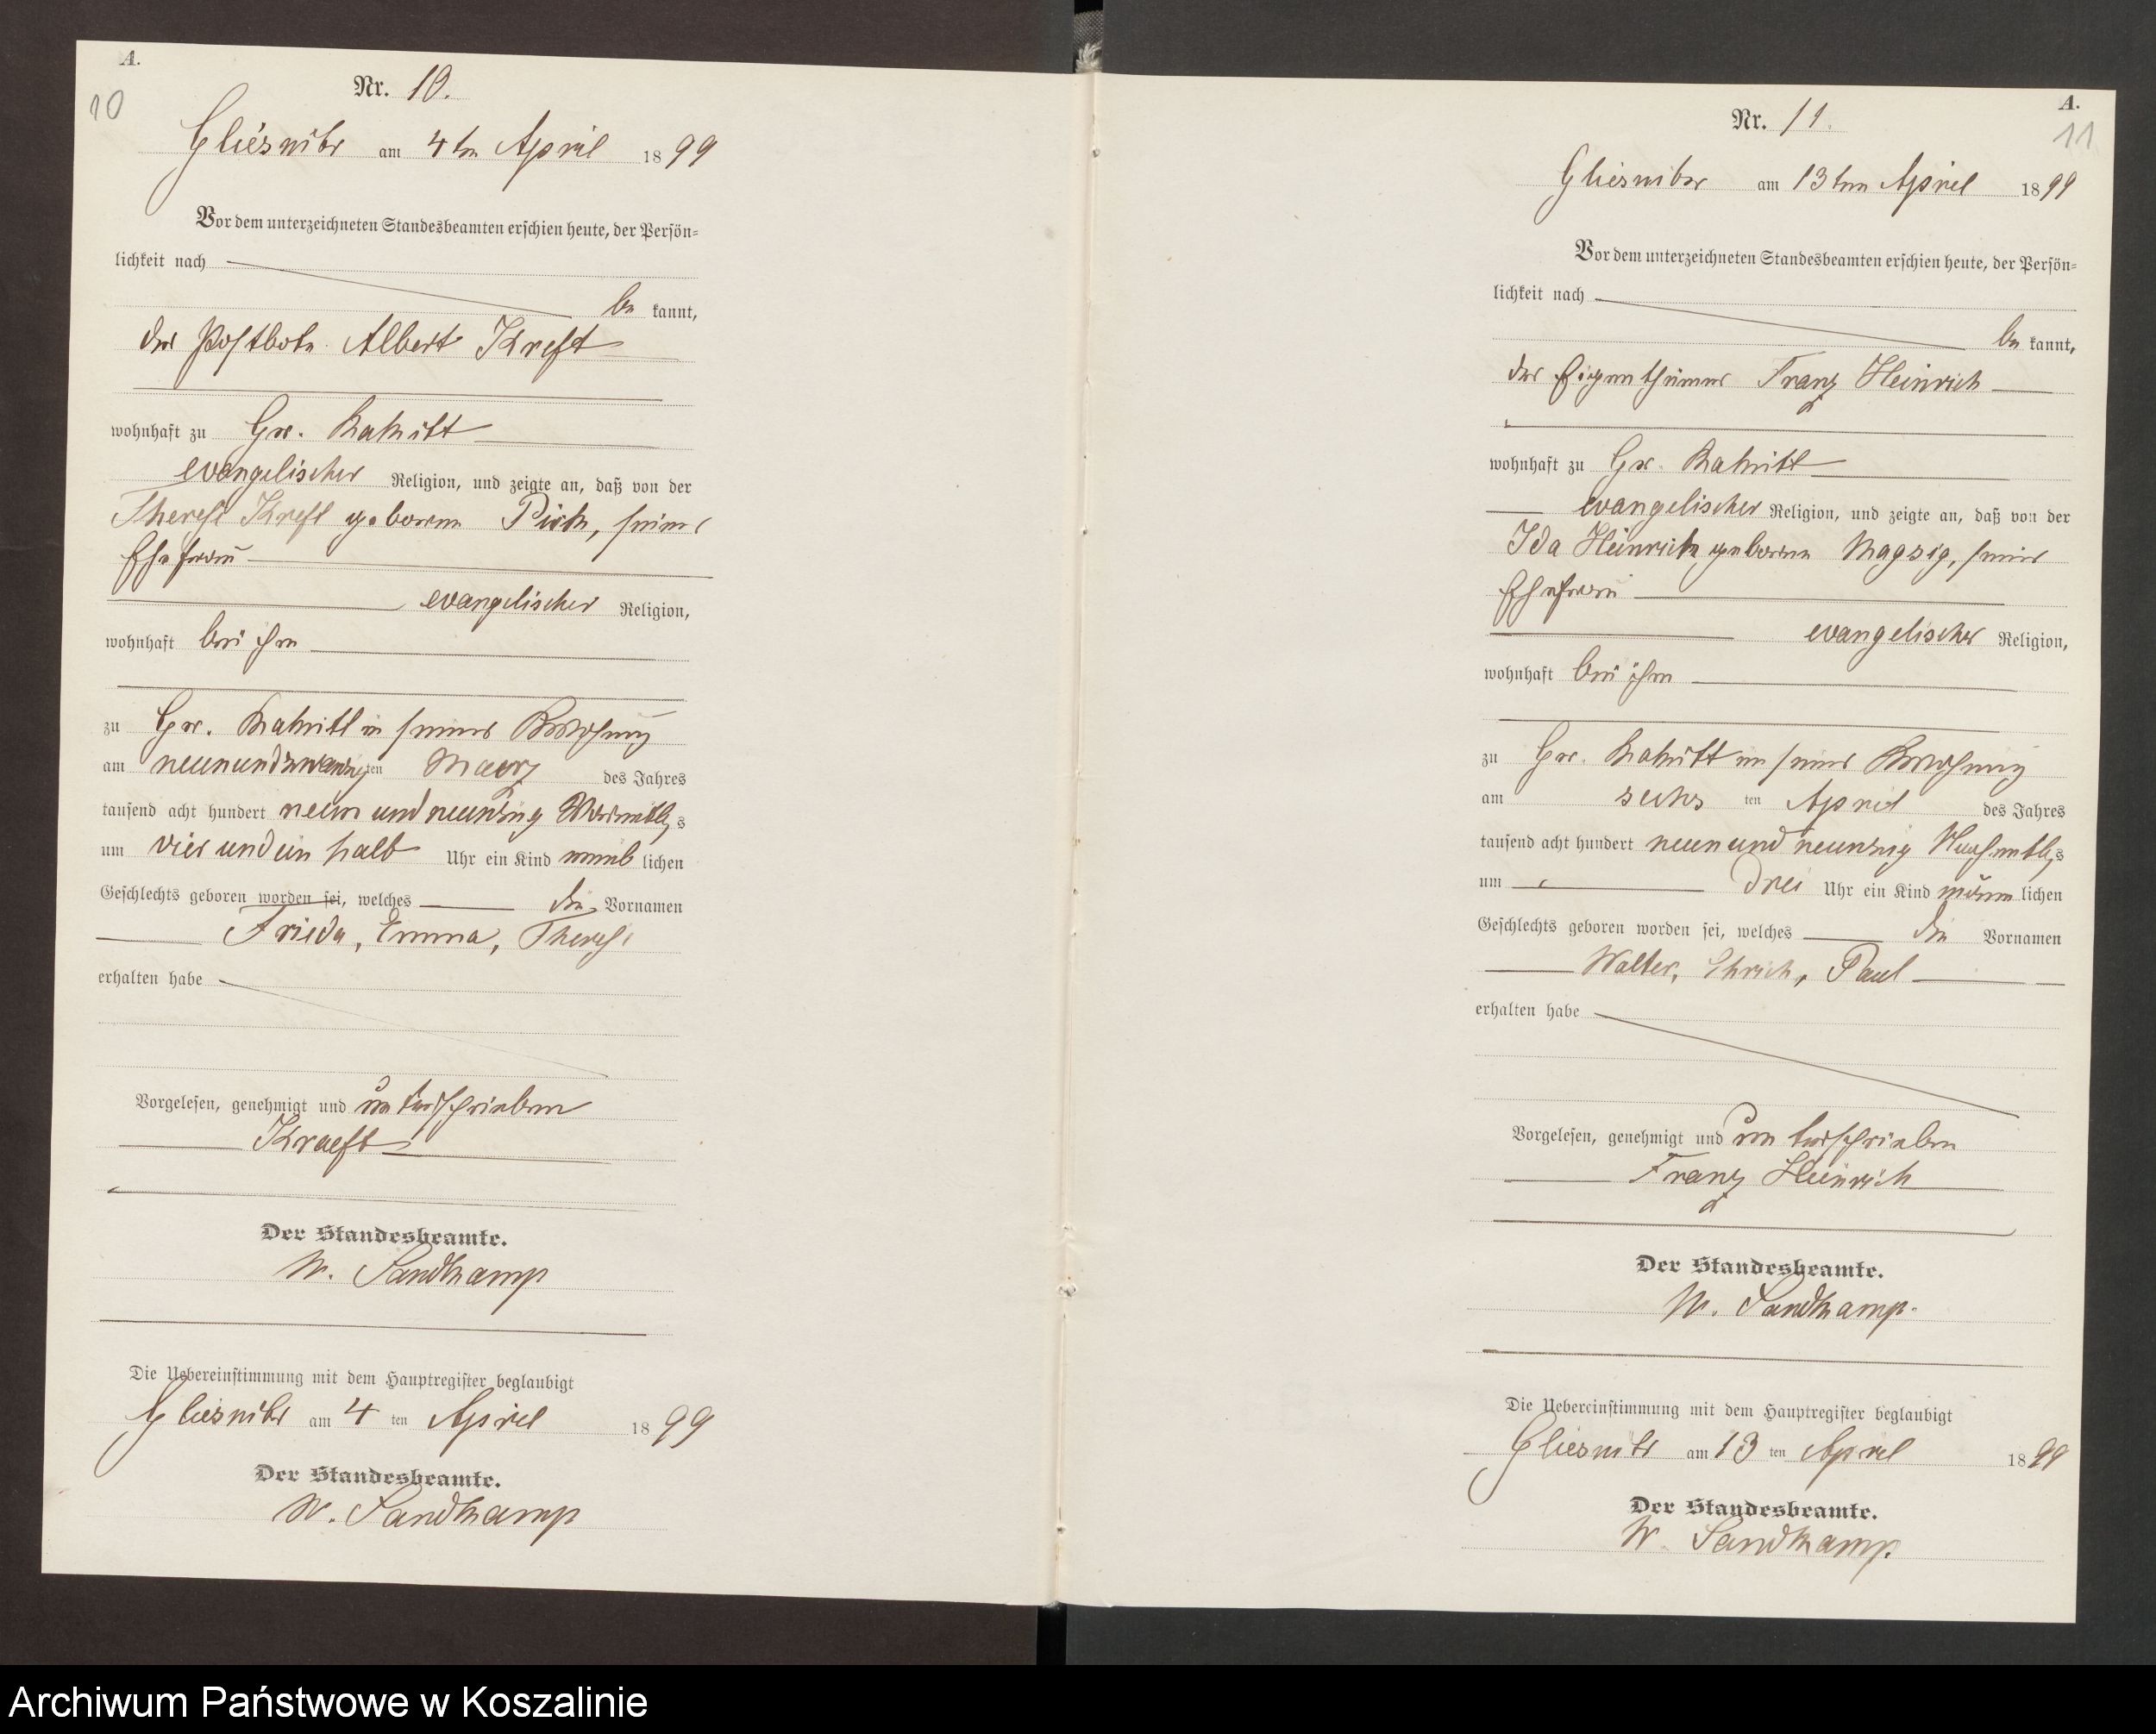 A.
10
Nr. 10.
Gliesnitz am 4ten April 1899
Vor dem unterzeichneten Standesbeamten erschien heute, der Persön-
lichkeit nach
be kannt,
der Postbote Albert Kreft
wohnhaft zu Gr. Rakitt
evangelischer Religion, und zeigte an, daß von der
Therese Kreft geborene Pirk, seiner
Ehefrau
evangelischer Religion,
wohnhaft bei ihm
zu Gr. Rakitt in seiner Wohnung
am neunundzwanzigten Maerz des Jahres
tausend acht hundert neun und neunzig Vormittags
um vier und ein halb Uhr ein Kind weib lichen
Geschlechts geboren worden sei, welches die Vornamen
Frieda, Emma, Therese
erhalten habe
Vorgelesen, genehmigt und unterschrieben
Kraeft
Der Standesbeamte.
W. Sandkamp
Die Uebereinstimmung mit dem Hauptregister beglaubigt
Gliesnitz am 4 ten April 1899
Der Standesbeamte.
W. Sandkamp
A.
11
Nr. 11.
Gliesnitz am 13ten April 1899
Vor dem unterzeichneten Standesbeamten erschien heute, der Persön-
lichkeit nach
be kannt,
der Eigenthümer Franz Heinrich
wohnhaft zu Gr. Rakitt
evangelischer Religion, und zeigte an, daß von der
Ida Heinrich, geborene Magsig, seiner
Ehefrau
evangelischer Religion,
wohnhaft bei ihm
zu Gr. Rakitt in seiner Wohnung
am sechs ten April des Jahres
tausend acht hundert neun und neunzig Nachmittags
um drei Uhr ein Kind männ lichen
Geschlechts geboren worden sei, welches die Vornamen
Walter, Ehrich, Paul
erhalten habe
Vorgelesen, genehmigt und unterschrieben
Franz Heinrich
Der Standesbeamte.
W. Sandkamp.
Die Uebereinstimmung mit dem Hauptregister beglaubigt
Gliesnitz am 13 ten April 1899
Der Standesbeamte.
W. Sandkamp.
Archiwum Państwowe w Koszalinie